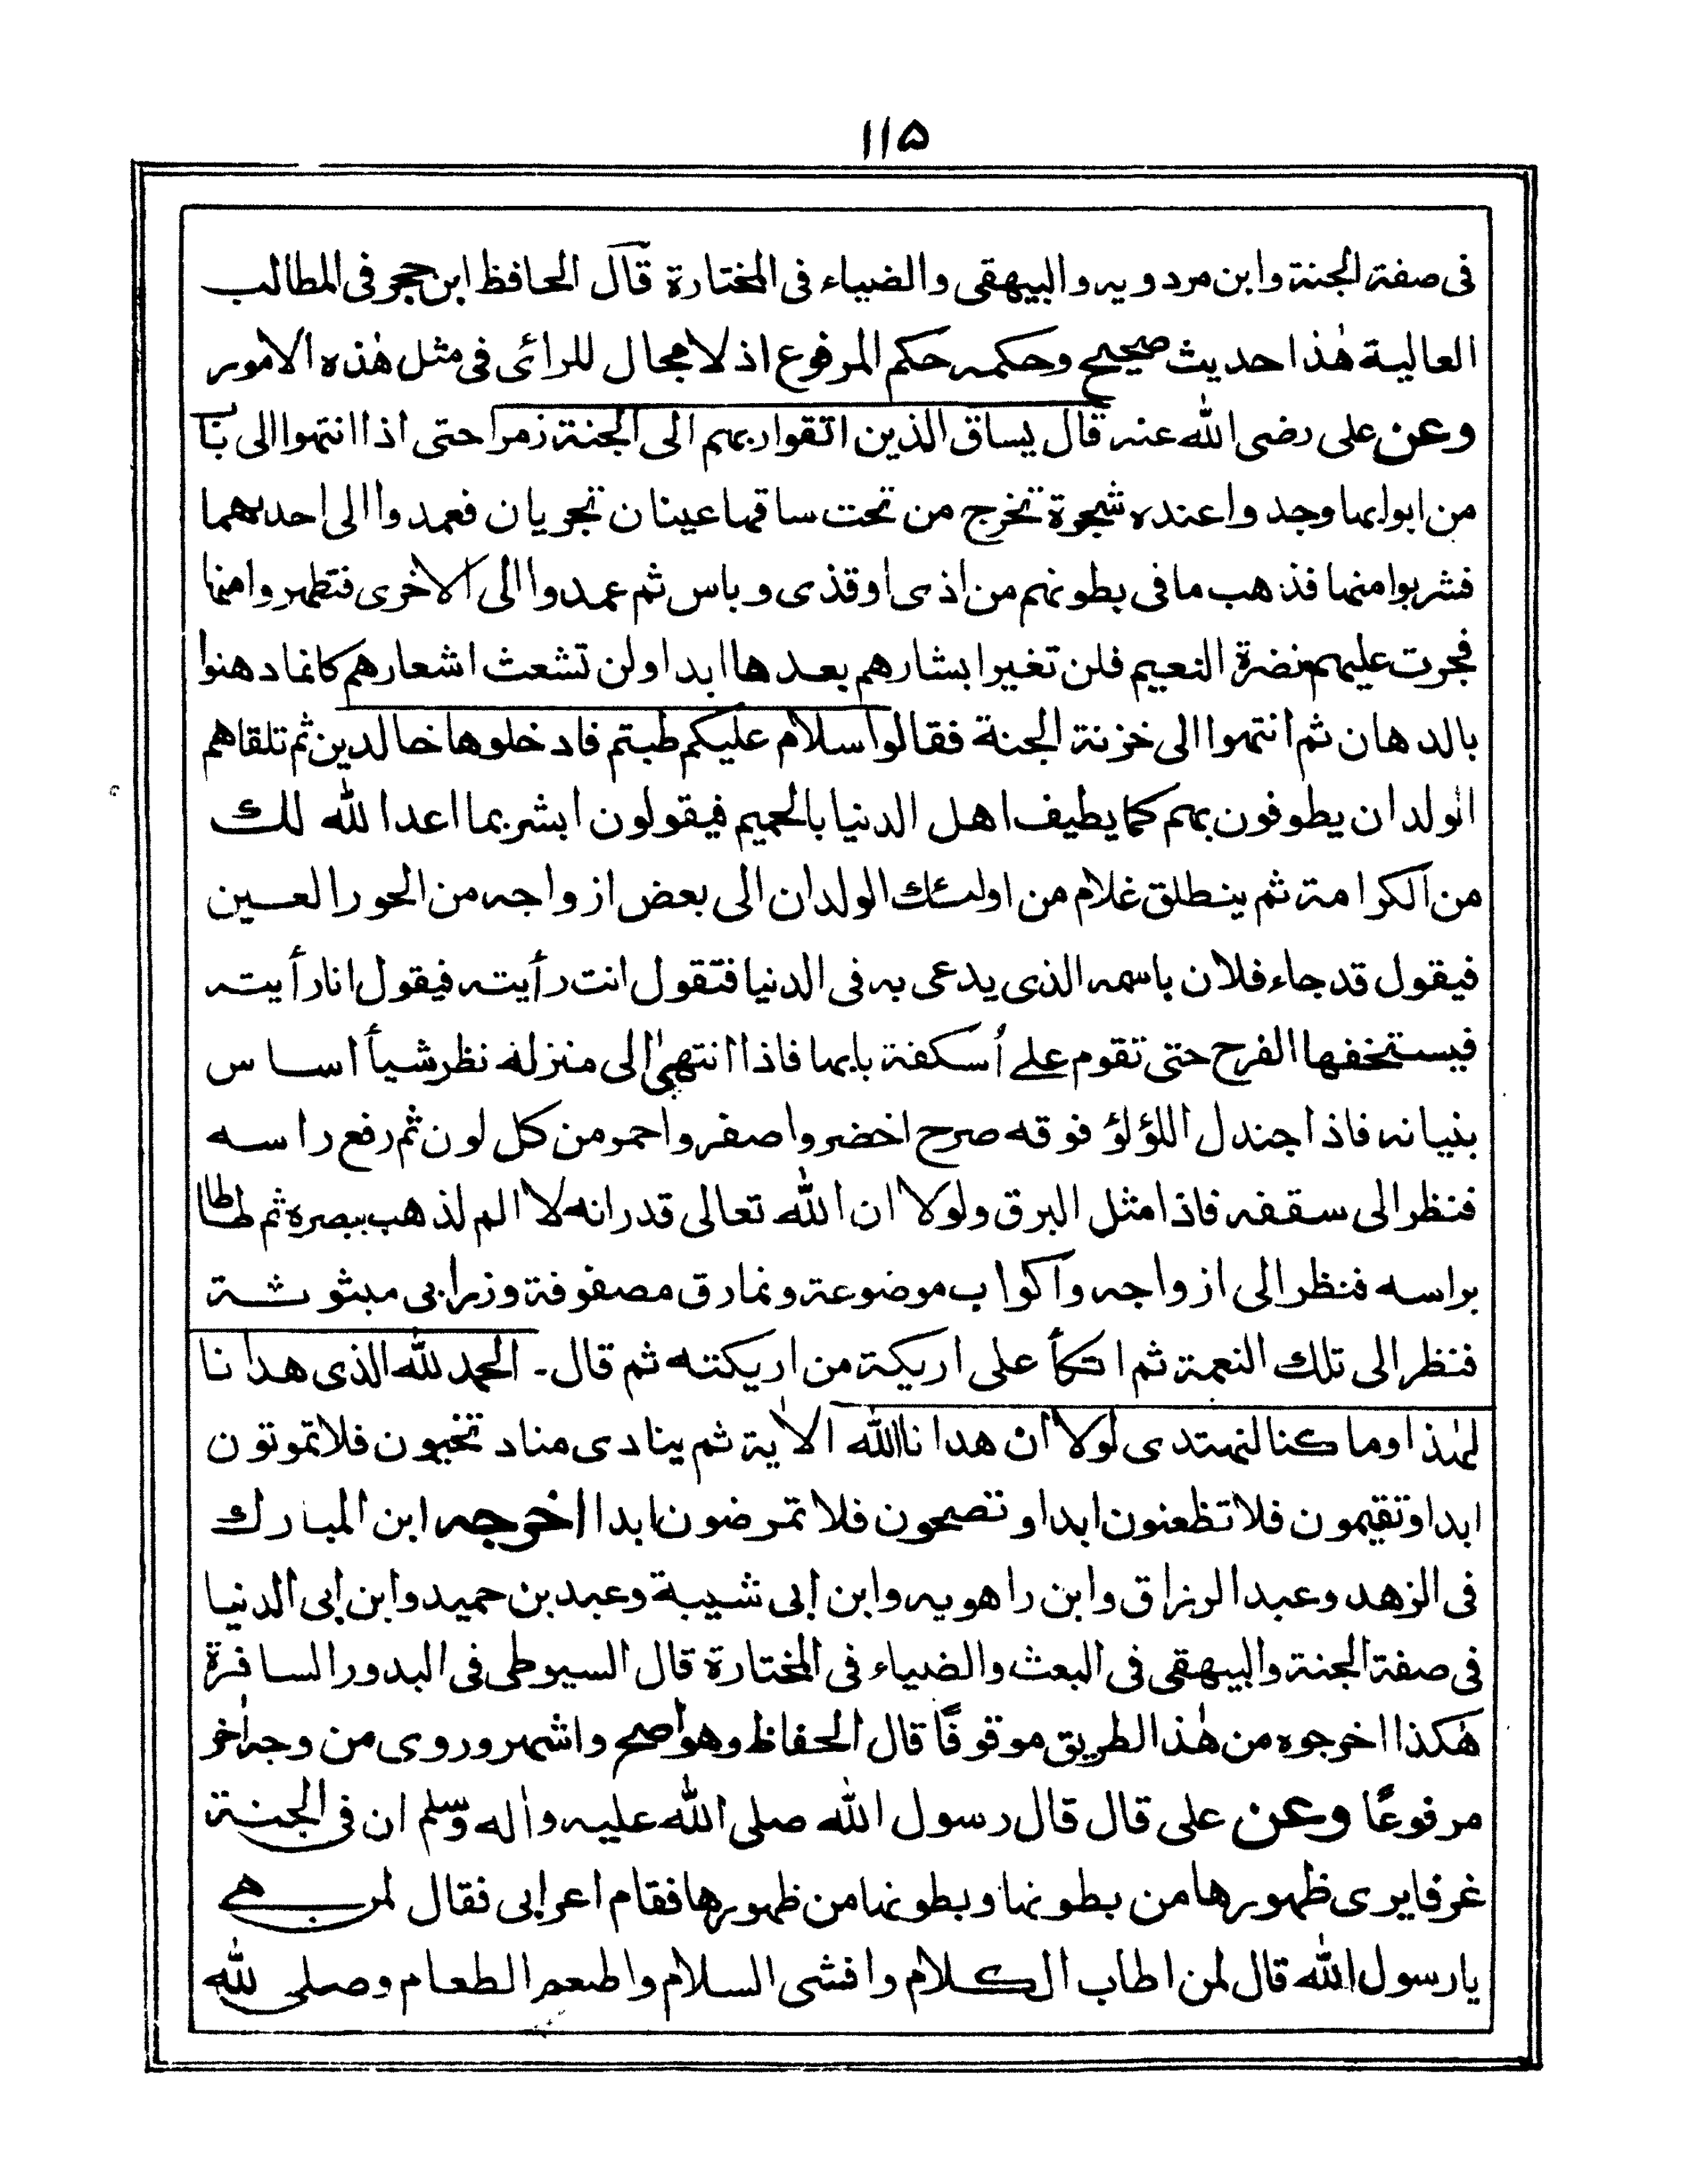 ١١۵
فى صفة الجنة وابن مردويه والبيهقى والضياء فى المختارة قال الحافظ ابن حجر فى المطالب
العالية هٰذا حديث صحيح وحكمه حكم المرفوع اذ لا مجال للرائى فى مثل هٰذه الامور
وعن على رضى الله عنه قال يساق الذين اتقوا ربهم الى الجنة زمرا حتى اذا انتهوا الى باب
من ابوابها وجدوا عنده شجرة تخرج من تحت ساقها عينان تجريان فعمدوا الى احدهما
فشربوا منها فذهب ما فى بطونهم من اذى او قذى وباس ثم عمدوا الى الاخرى فتطهروا منها
فجرت عليهم نضرة النعيم فلن تغير ابشارهم بعدها ابدا ولن تشعث اشعارهم كانما دهنوا
بالدهان ثم انتهوا الى خزنة الجنة فقالوا سلام عليكم طبتم فادخلوها خالدين ثم تلقاهم
الولدان يطوفون بهم كما يطيف اهل الدنيا بالحميم فيقولون ابشر بما اعد الله لك
من الكرامة ثم ينطلق غلام من اولئك الولدان الى بعض ازواجه من الحور العين
فيقول قد جاء فلان باسمه الذى يدعى به فى الدنيا فتقول انت رأيته فيقول انا رأيته
فيستخفها الفرح حتى تقوم على أسكفة بابها فاذا انتهىٰ الى منزله نظر شيأ اساس
بنيانه فاذا جندل اللؤلؤ فوقه صرح اخضر واصفر واحمر من كل لون ثم رفع راسه
فنظر الى سقفه فاذا مثل البرق ولولا ان الله تعالى قدر انه لا الم لذهب ببصره ثم طاطا
براسه فنظر الى ازواجه واكواب موضوعة ونمارق مصفوفة وزرابى مبثوثة
فنظر الى تلك النعمة ثم اتكأ على اريكة من اريكته ثم قال۔ الحمد لله الذى هدانا
لهٰذا وما كنا لنهتدى لولا ان هدانا الله الاٰية ثم ينادى مناد تحيون فلا تموتون
ابدا وتقيمون فلا تظعنون ابدا وتصحون فلا تمرضون ابدا اخرجه ابن المبارك
فى الزهد وعبد الرزاق وابن راهويه وابن ابى شيبة وعبد بن حميد وابن ابى الدنيا
فى صفة الجنة والبيهقى فى البعث والضياء فى المختارة قال السيوطى فى البدور السافرة
هٰكذا اخرجوه من هٰذا الطريق موقوفًا قال الحفاظ وهو اصح واشهر وروى من وجه اٰخر
مرفوعًا وعن على قال قال رسول الله صلى الله عليه واٰله وسلم ان فى الجنة
غرفا يرى ظهورها من بطونها وبطونها من ظهورها فقام اعرابى فقال لمن هى
يا رسول الله قال لمن اطاب الكلام وافشى السلام واطعم الطعام وصلى لله